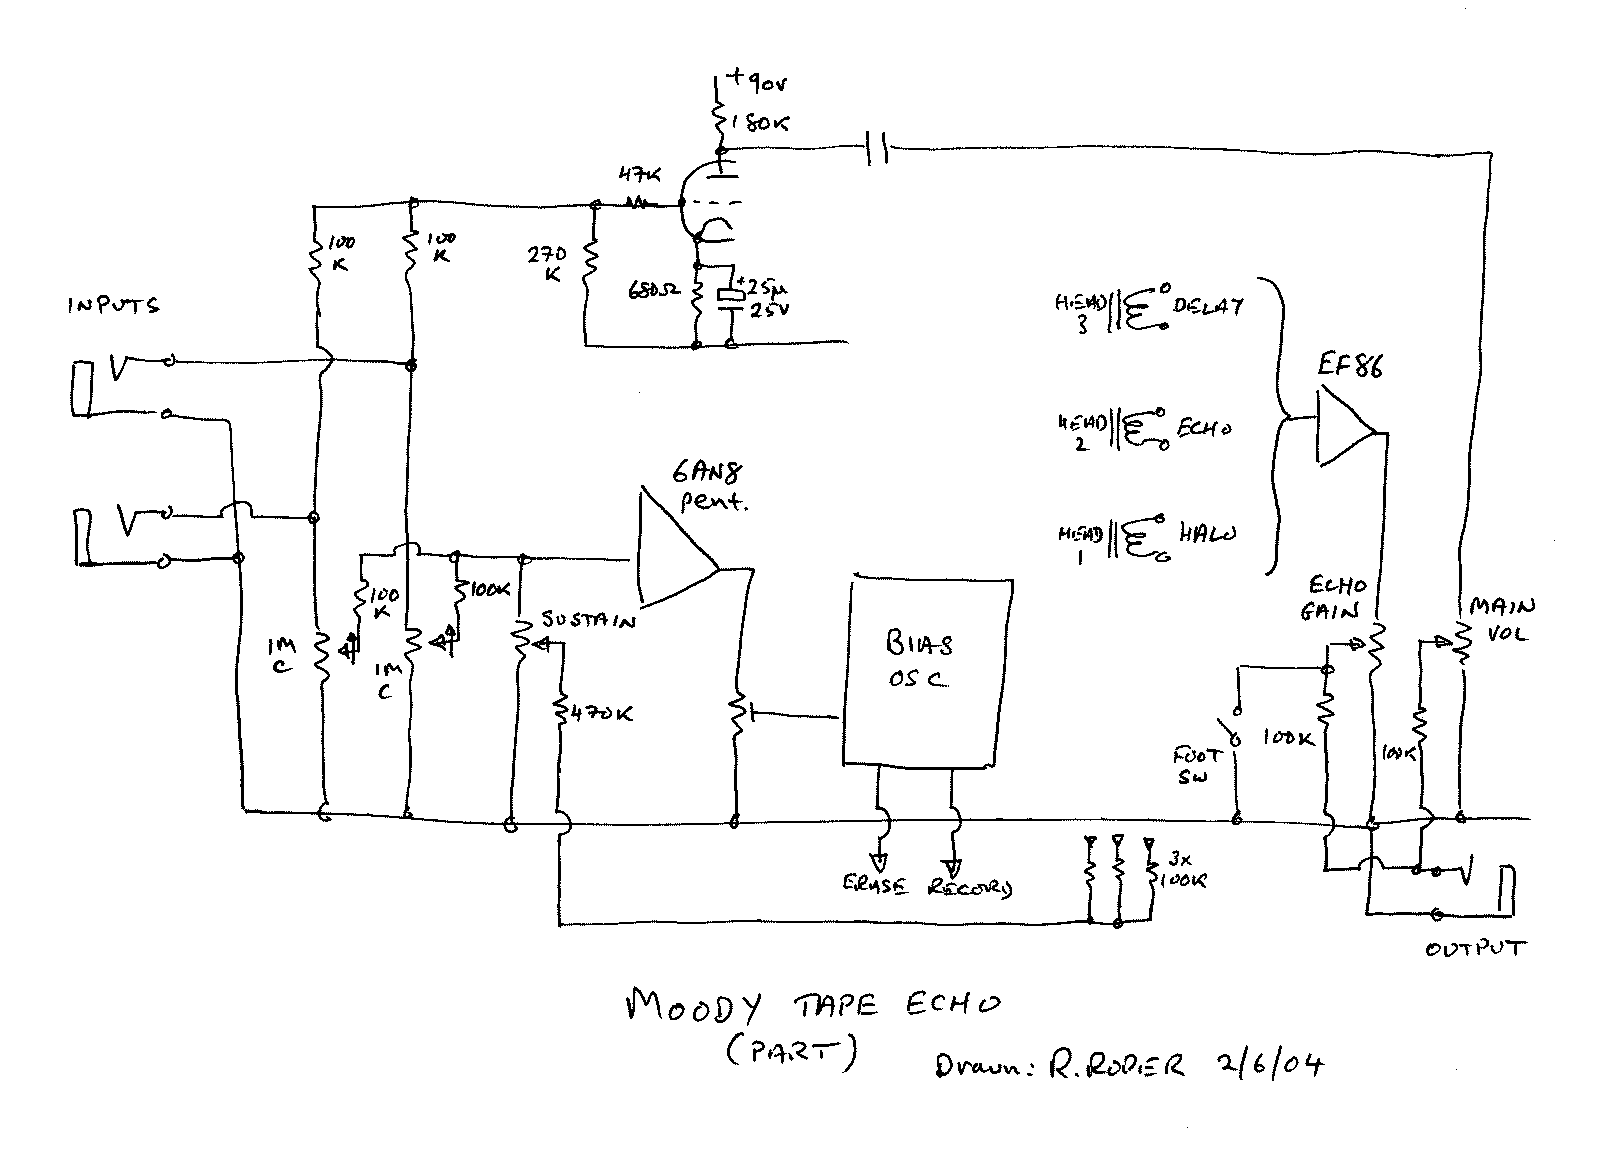 +90V
180K
47K
100
K
100
K
270
K
680Ω
+
25µ
25V
INPUTS
HEAD
3
DELAY
EF86
HEAD
2
ECHO
6AN8
pent.
HEAD
1
HALO
100
K
100K
SUSTAIN
ECHO
GAIN
MAIN
VOL
1M
C
1M
C
BIAS
OSC
470K
100K
100K
FOOT
SW
ERASE
RECORD
3x
100K
OUTPUT
MOODY TAPE ECHO
(PART)
Drawn: R.ROPER 2/6/04